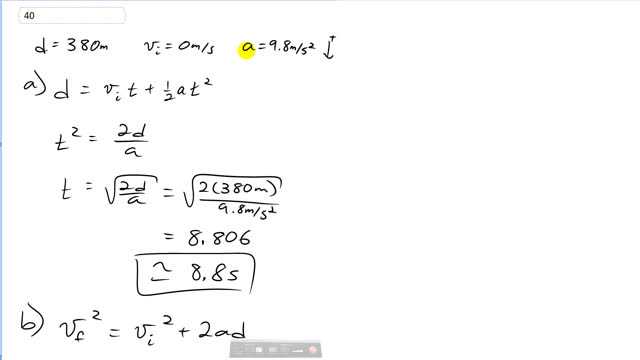 40
d = 380m v_i = 0m/s a = 9.8m/s² ↓+
a) d = v_i t + 1/2 a t²
t² = 2d/a
t = √(2d/a) = √(2(380m)/9.8m/s²)
= 8.806
≃ 8.8s
b) v_f² = v_i² + 2ad